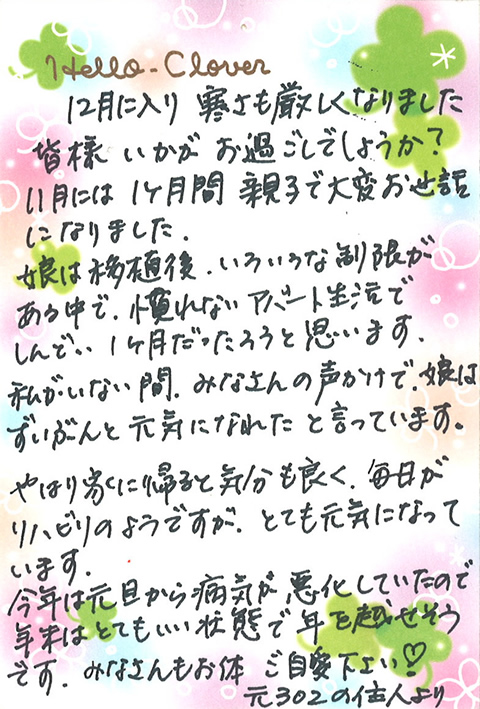 Hello-Clover
12月に入り 寒さも厳しくなりました
皆様 いかが お過ごしでしょうか?
11月には 1ヶ月間 親子で大変お世話
になりました.
娘は移植後.いろいろな制限が
ある中で.慣れない アパート生活で
しんどい 1ヶ月だったろうと思います.
私がいない間.みなさんの声かけで.娘は
ずいぶんと元気になれた と言っています。
やはり家に帰ると気分も良く.毎日が
リハビリのようですが.とても元気になって
います.
今年は元旦から病気が悪化していたので
年末はとてもいい状態で年を越せそう
です.みなさんもお体 ご自愛下さい♡
元302の住人より